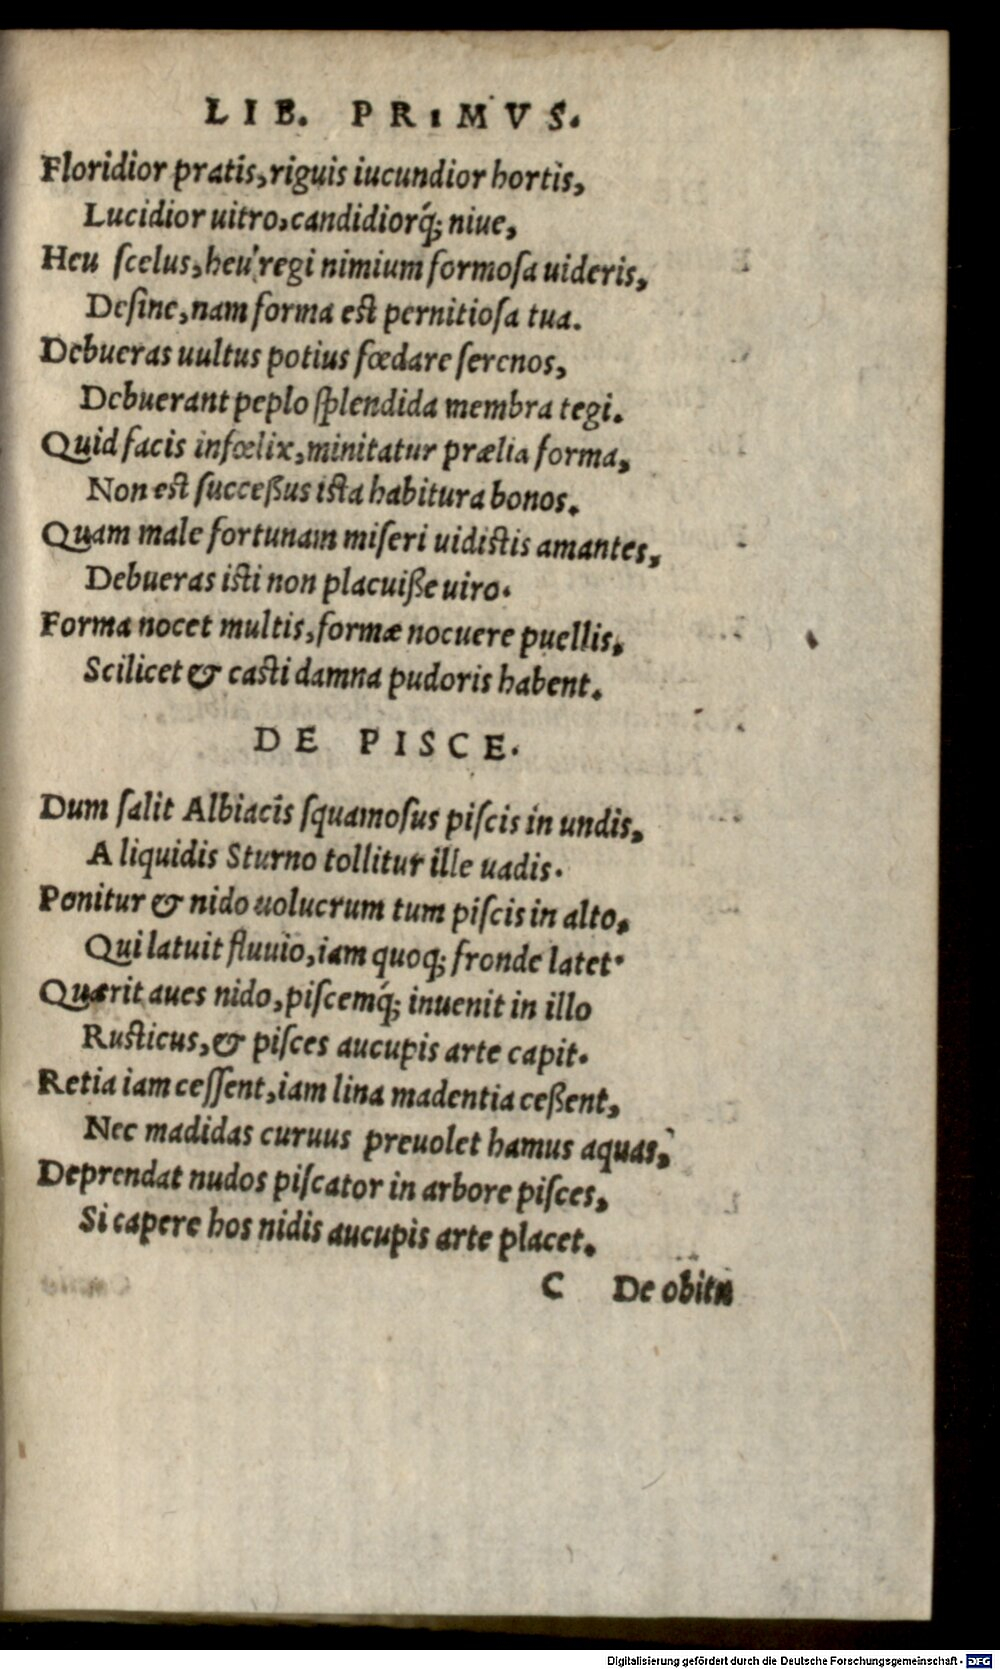 LIB. PRIMVS.
Floridior pratis, riguis iucundior hortis,
Lucidior uitro, candidiorq́; niue,
Heu ſcelus, heu regi nimium formoſa uideris,
Deſine, nam forma eſt pernitioſa tua.
Debueras uultus potius fœdare ſerenos,
Debuerant peplo ſplendida membra tegi.
Quid facis infœlix, minitatur prælia forma,
Non eſt ſucceßus iſta habitura bonos.
Quam male fortunam miſeri uidiſtis amantes,
Debueras iſti non placuiße uiro.
Forma nocet multis, formæ nocuere puellis,
Scilicet & caſti damna pudoris habent.
DE PISCE.
Dum ſalit Albiacis ſquamoſus piſcis in undis,
A liquidis Sturno tollitur ille uadis.
Ponitur & nido uolucrum tum piſcis in alto,
Qui latuit fluuio, iam quoq; fronde latet.
Quærit aues nido, piſcemq́; inuenit in illo
Ruſticus, & piſces aucupis arte capit.
Retia iam ceſſent, iam lina madentia ceßent,
Nec madidas curuus preuolet hamus aquas,
Deprendat nudos piſcator in arbore piſces,
Si capere hos nidis aucupis arte placet.
C De obitu
Digitalisierung gefördert durch die Deutsche Forschungsgemeinschaft - DFG